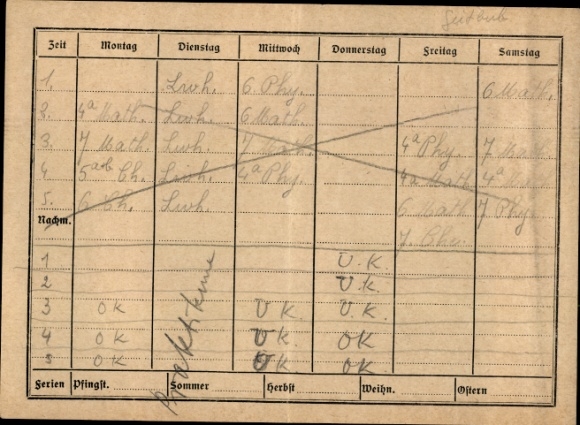 Zeit Montag Dienstag Mittwoch Donnerstag Freitag Samstag
1. Lwh. 6. Phy. 6 Math.
2. 4a Math. Lwh. 6 Math.
3. 7 Math. Lwh. 7 Math. 4a Phy. 7 Math.
4 5a+b Ch. Lwh. 4a Phy. 4a Math. 4a
5. 6 Ch. Lwh. 6 Math 7 Phy.
Nachm.
7. Ch
1 U. K.
2 U. K.
3 OK U K. U. K.
4 OK U K. OK
5 OK U K. OK
Ferien Pfingst. Sommer Herbst Weihn. Ostern